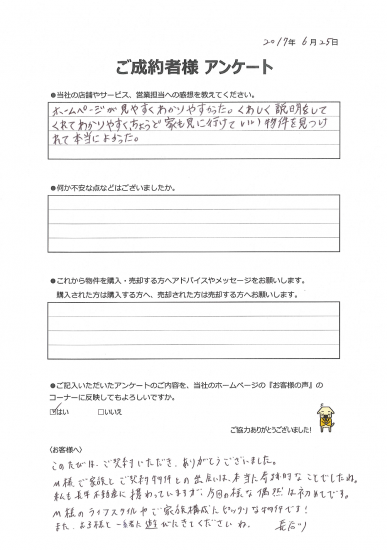 2019年 6月25日
ご成約者様 アンケート
●当社の店舗やサービス、営業担当への感想を教えてください。
ホームページが見やすくわかりやすかった。くわしく説明をして
くれてわかりやすくちょうど家も見に行けていい物件を見つけ
れて本当によかった。
●何か不安な点などはございましたか。
●これから物件を購入・売却する方へアドバイスやメッセージをお願いします。
購入された方は購入する方へ、売却された方は売却する方へお願いします。
●ご記入いただいたアンケートのご内容を、当社のホームページの『お客様の声』の
コーナーに反映してもよろしいですか。
☑はい □いいえ
ご協力ありがとうございました!
〈お客様へ〉
このたびは、ご契約いただき、ありがとうございました。
M様ご家族とご契約物件との出会いは、本当に奇跡的なことでしたね。
私も長年不動産に携わっていますが、今回の様な偶然は初めてです。
M様のライフスタイルやご家族構成にピッタリな物件です!
また、お子様と一緒に遊びにきてくださいね。